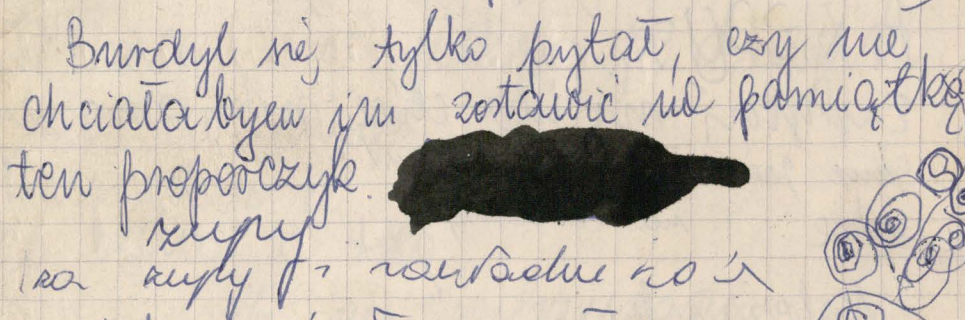 Burdyl się tylko pytał, czy nie
chciałabym im zostawić na pamiątkę
ten proporczyk.
zupy
za zupy i